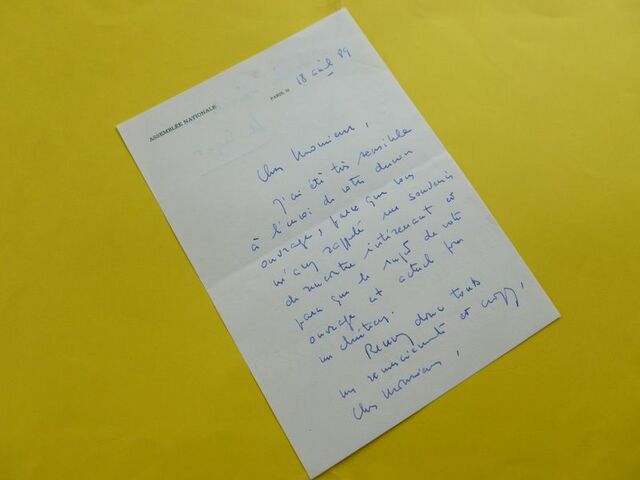 ASSEMBLÉE NATIONALE
PARIS, le 18 avril 89
Cher Monsieur,
J'ai été très sensible
à l'envoi de votre dernier
ouvrage, parce que vous
m'avez rappelé un souvenir
de rencontre intéressant et
parce que le sujet de votre
ouvrage est actuel pour
un chrétien.
Recevez donc toute
mes remerciements et croyez,
Cher Monsieur,